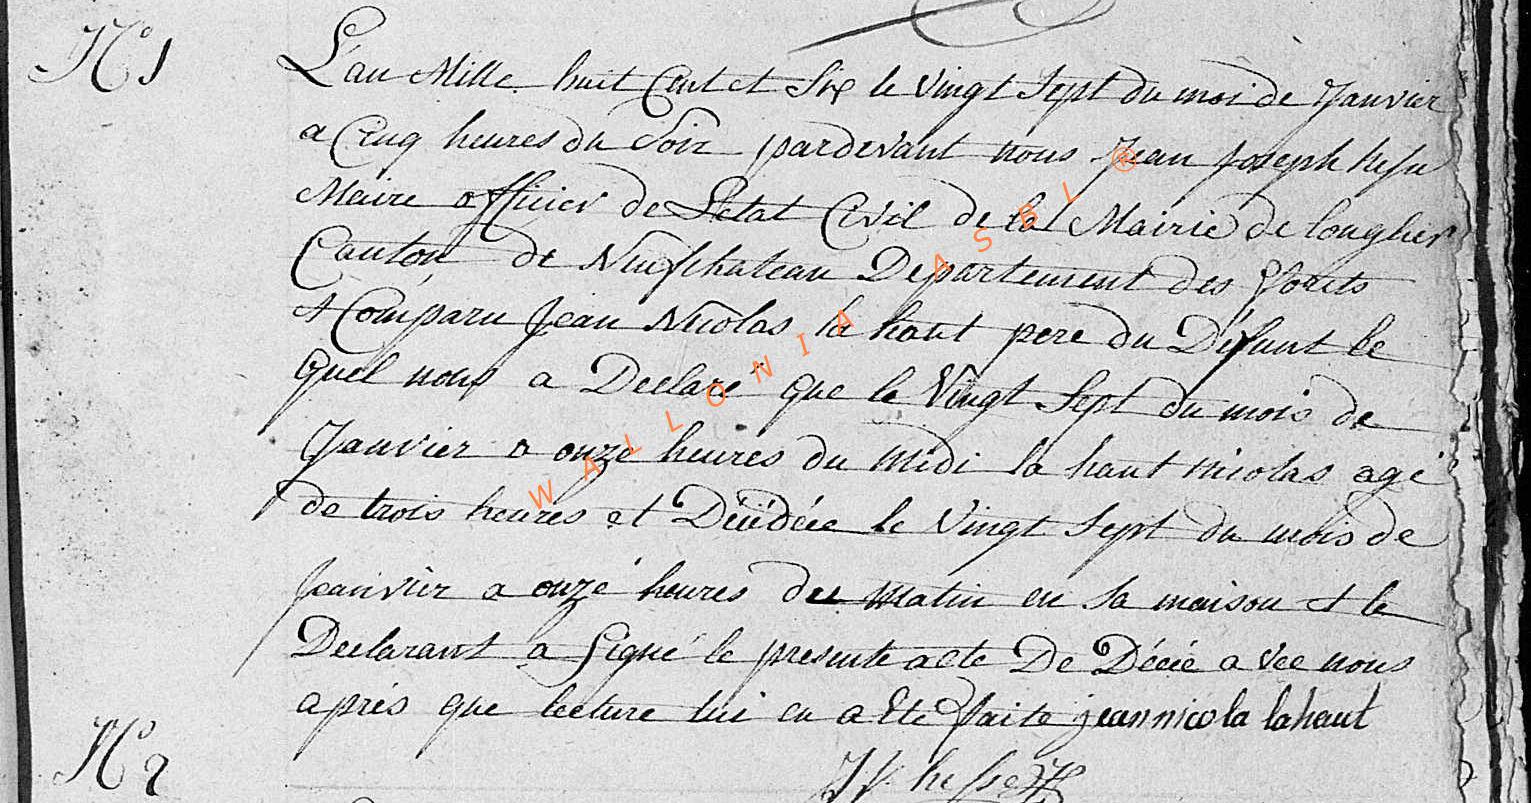 N° 1
L'an Mille huit Cent et Six le vingt Sept du moi de Janvier
a Cinq heures du Soir pardevant nous Jean Joseph
Maire officier de Letat Civil de la Mairie de longlier
Canton de Neufchateau Departement des forets
et Comparu Jean Nicolas la haut pere du Défunt le
quel nous a Declaré que le Vingt Sept du mois de
Janvier a onze heures du midi la haut nicolas agé
de trois heures et Décédée le Vingt Sept du mois de
Janvier a onze heures du matin en sa maison et le
Declarant a Signé le presente acte De Décée avec nous
après que lecture lui en a Eté faite jean nicola lahaut
WALLONIA ASBL ®
N° 2